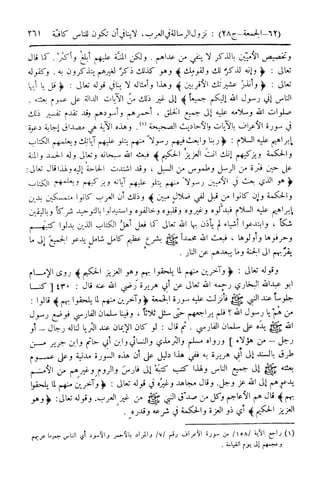 (٦٢-الجمعة-ج٢٨) : نزول الرسالة في العرب، لاينافي أن تكون للناس كافة ٣٦١
وتخصيص الأميين بالذكر لا ينفي من عداهم. ولكن المنة عليهم أبلغ وأكثر. كما قال
تعالى : ﴿ وإنه لذكر لك ولقومك ﴾ وهو كذلك ذكر لغيرهم يتذكرون به. وكقوله
تعالى : ﴿ وأنذر عشيرتك الأقربين ﴾ وهذا وأمثاله لا ينافي قوله تعالى : ﴿ قل يا أيها
الناس إني رسول الله إليكم جميعاً ﴾ إلى غير ذلك من الآيات الدالة على عموم بعثته.
صلوات الله وسلامه عليه إلى جميع الخلق، أحمرهم وأسودهم وقد تقدم تفسير ذلك
في سورة الأعراف بالآيات والأحاديث الصحيحة (١). وهذه الآية هي مصداق إجابة دعوة
إبراهيم عليه السلام : ﴿ ربنا وابعث فيهم رسولاً منهم يتلو عليهم آياتك ويعلمهم الكتاب
والحكمة ويزكيهم إنك انت العزيز الحكيم ﴾ فبعثه الله سبحانه وتعالى وله الحمد والمنة
على حين فترة من الرسل وطموس من السبل، وقد اشتدت الحاجة إليه ولهذا قال تعالى:
﴿ هو الذي بعث في الأميين رسولاً منهم يتلو عليهم آياته ويزكيهم ويعلمهم الكتاب
والحكمة وإن كانوا من قبل لفي ضلال مبين ﴾ وذلك أن العرب كانوا متمسكين بدين
إبراهيم عليه السلام فبدلوه وغيروه وقلبوه وخالفوه واستبدلوا بالتوحيد شركاً وباليقين
شكاً، وابتدعوا أشياء لم يأذن بها الله تعالى كما فعل أهل الكتاب الذين بدلوا كتبهم
وحرفوها وأولوها، فبعث الله محمداً ﷺ بشرع عظيم كامل شامل يدعو الجميع إلى ما
يقربهم إلى الجنة وما يبعدهم عن النار.
وقوله تعالى : ﴿ وآخرين منهم لما يلحقوا بهم وهو العزيز الحكيم ﴾ روى الإمام
ابو عبدالله البخاري رحمه الله تعالى عن أبي هريرة رضي الله عنه قال : ٤٣٠ [ كنا
جلوساً عند النبي ﷺ فأنزلت عليه سورة الجمعة ﴿ وآخرين منهم لما يلحقوا بهم ﴾ قالوا :
من هم يا رسول الله ؟ فلم يراجعهم حتى سئل ثلاثاً، وفينا سلمان الفارسي فوضع رسول
الله ﷺ يده على سلمان الفارسي. ثم قال : لو كان الإيمان عند الثريا لناله رجال – أو
رجل – من هؤلاء ] ورواه مسلم والترمذي والنسائي وابن أبي حاتم وابن جرير من
طرق بالسند إلى أبي هريرة به ففي هذا دليل على أن هذه السورة مدنية وعلى عموم
بعثته ﷺ إلى جميع الناس ولهذا كتب كتبه إلى فارس والروم وغيرهم من الأمم
يدعوهم إلى الله عز وجل. وقال مجاهد وغيره في قوله تعالى : ﴿ وآخرين منهم لما يلحقوا
بهم ﴾ قال هم الأعاجم وكل من صدق النبي ﷺ من غير العرب. وقوله تعالى: ﴿ وهو
العزيز الحكيم ﴾ أي ذو العزة والحكمة في شرعه وقدره.
(١) راجع الآية /١٥٨/ من سورة الأعراف رقم /٧/ والمراد بالأحمر والأسود أي الناس جميعا عربهم
وعجمهم إلى يوم القيامة.